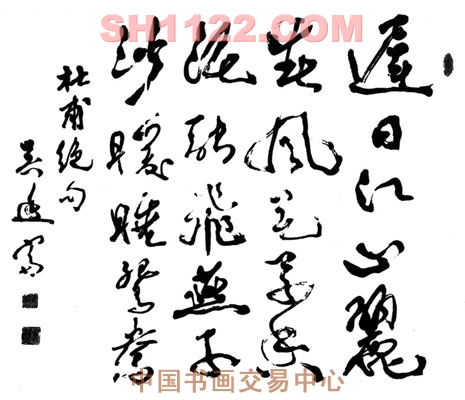 SH1122.COM
遲日江山麗
春风花草香
泥融飛燕子
沙暖睡鴛鴦
杜甫絕句
吴
中国书画交易中心